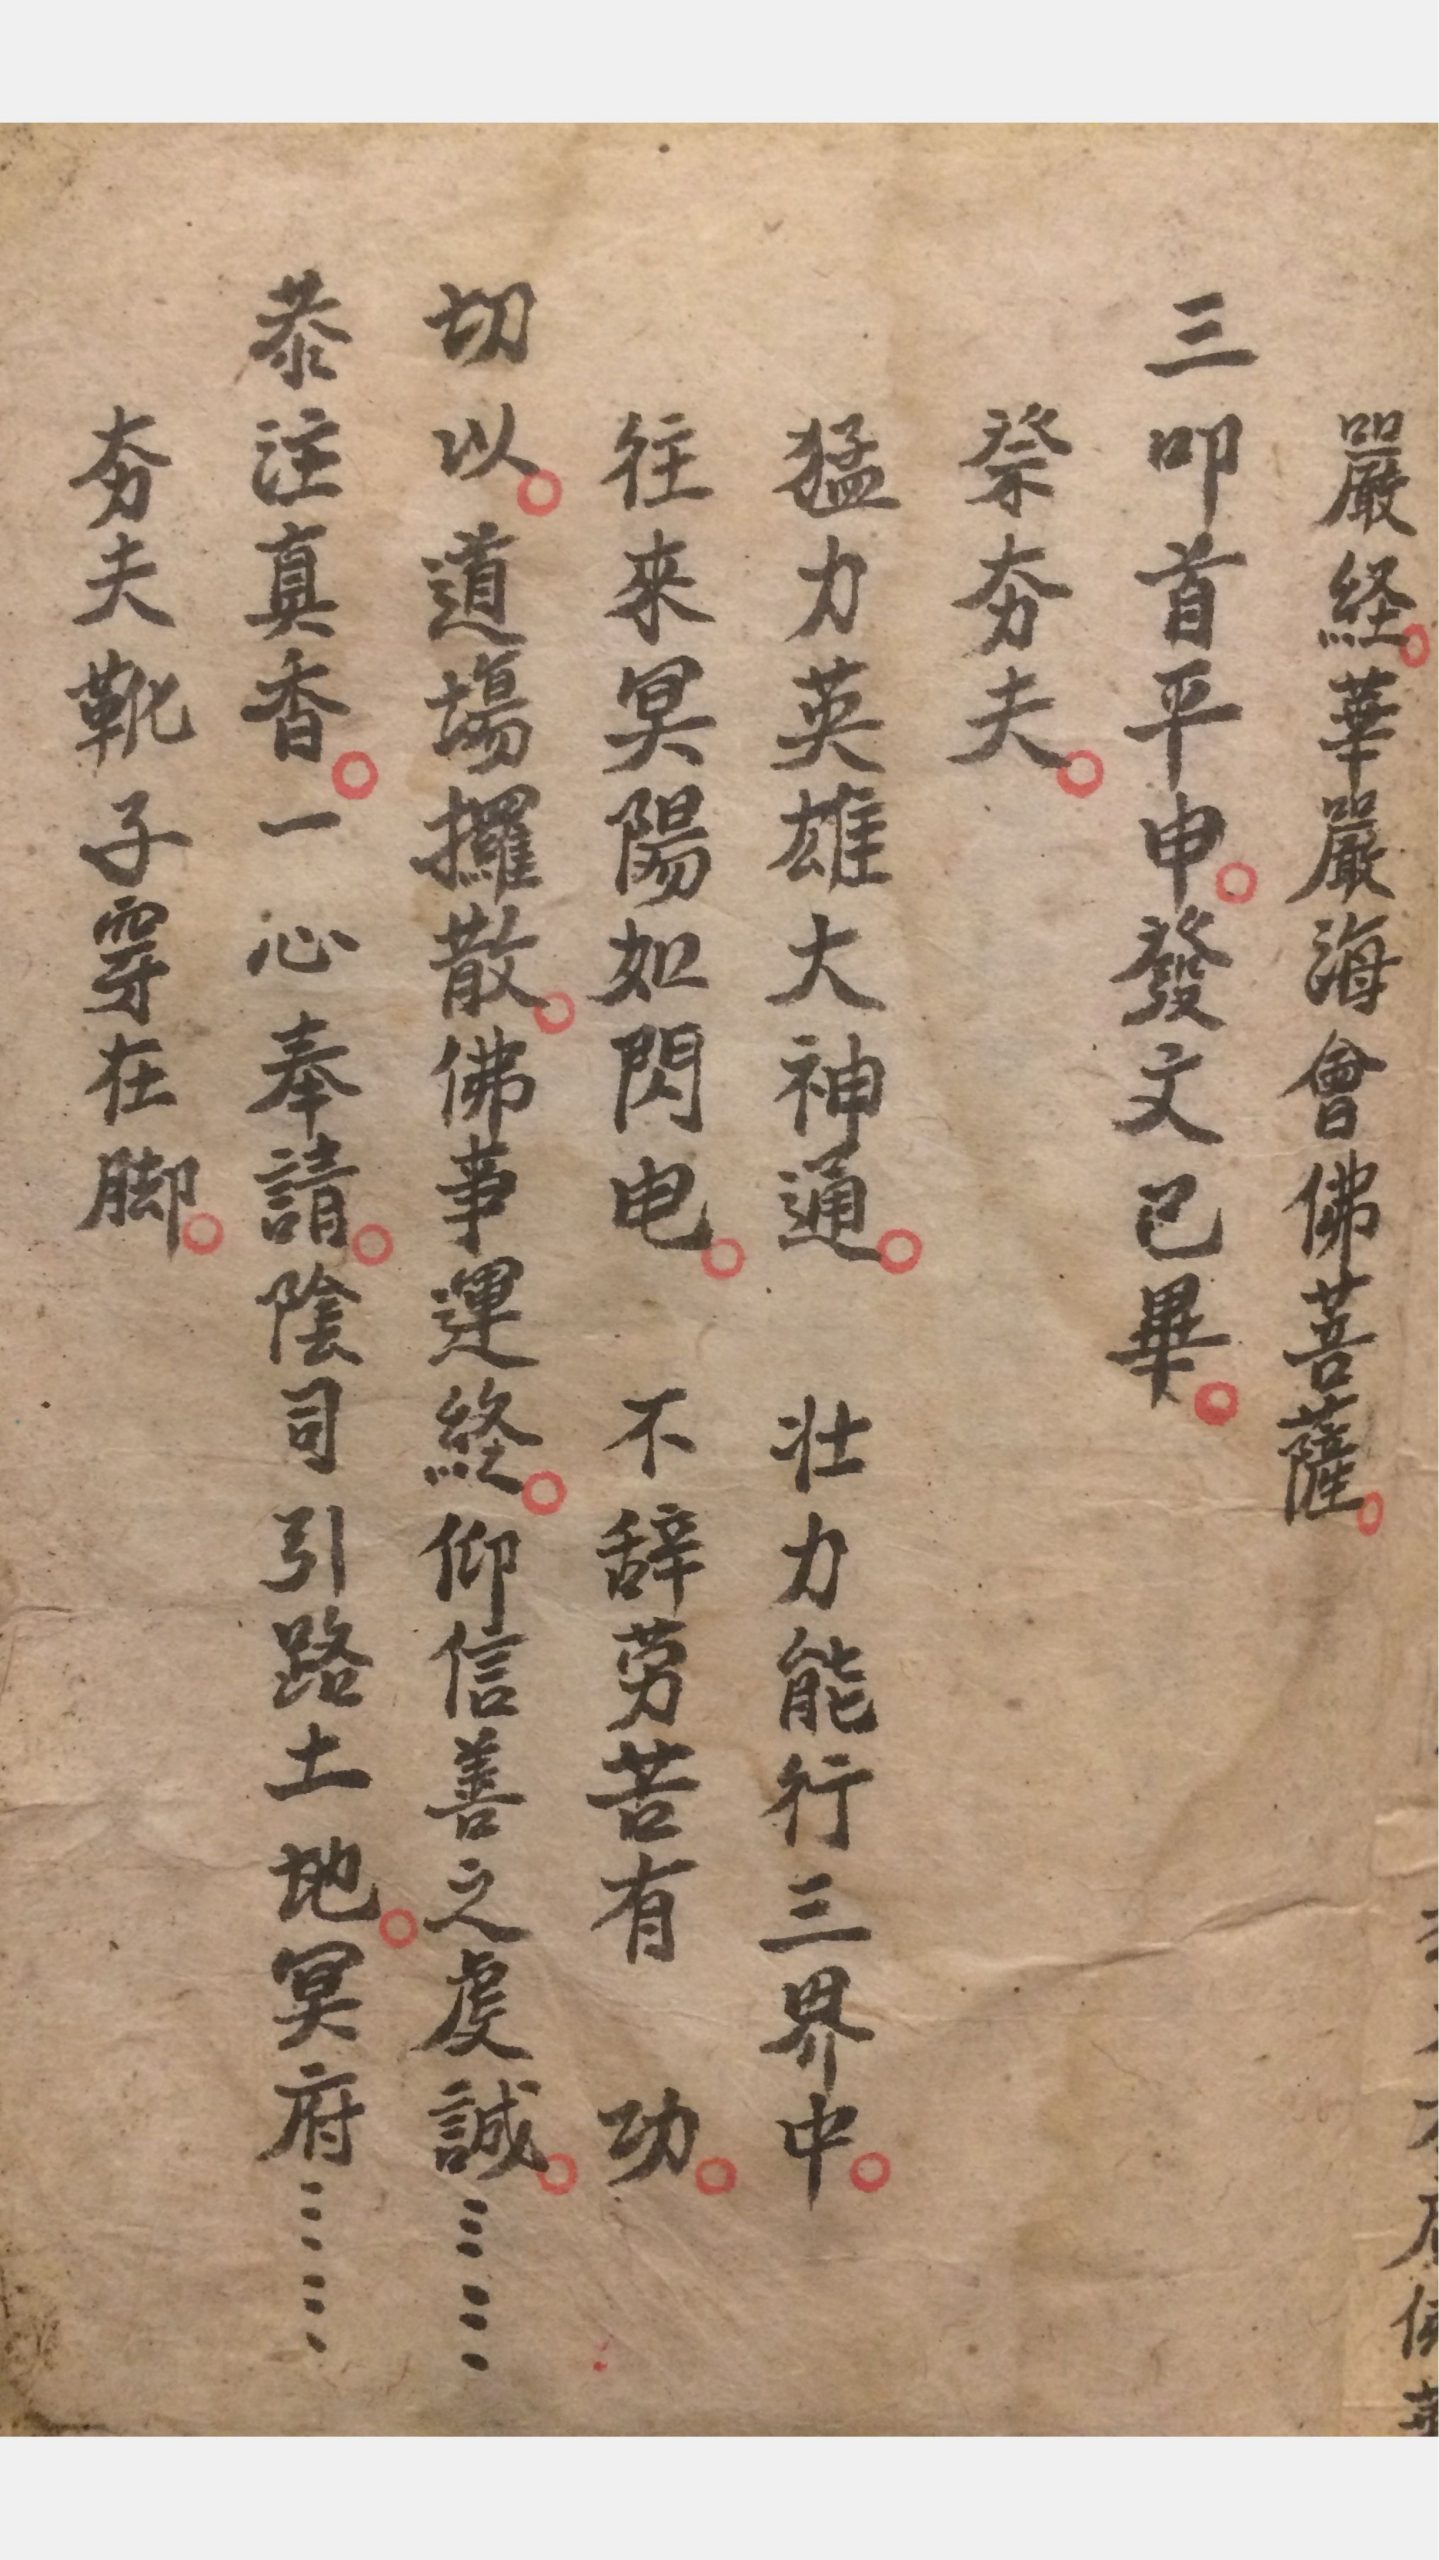 嚴経。華嚴海會佛菩薩。
三叩首平申。發文已畢。
祭夯夫。
猛力英雄大神通。 壮力能行三界中。
往來冥陽如閃电。 不辞劳苦有功。
切以。道塲攞散。佛事運終。仰信善之虔誠。⋮⋮
恭注真香。一心奉請。陰司引路土地。冥府⋮⋮
夯夫靴子穿在脚。